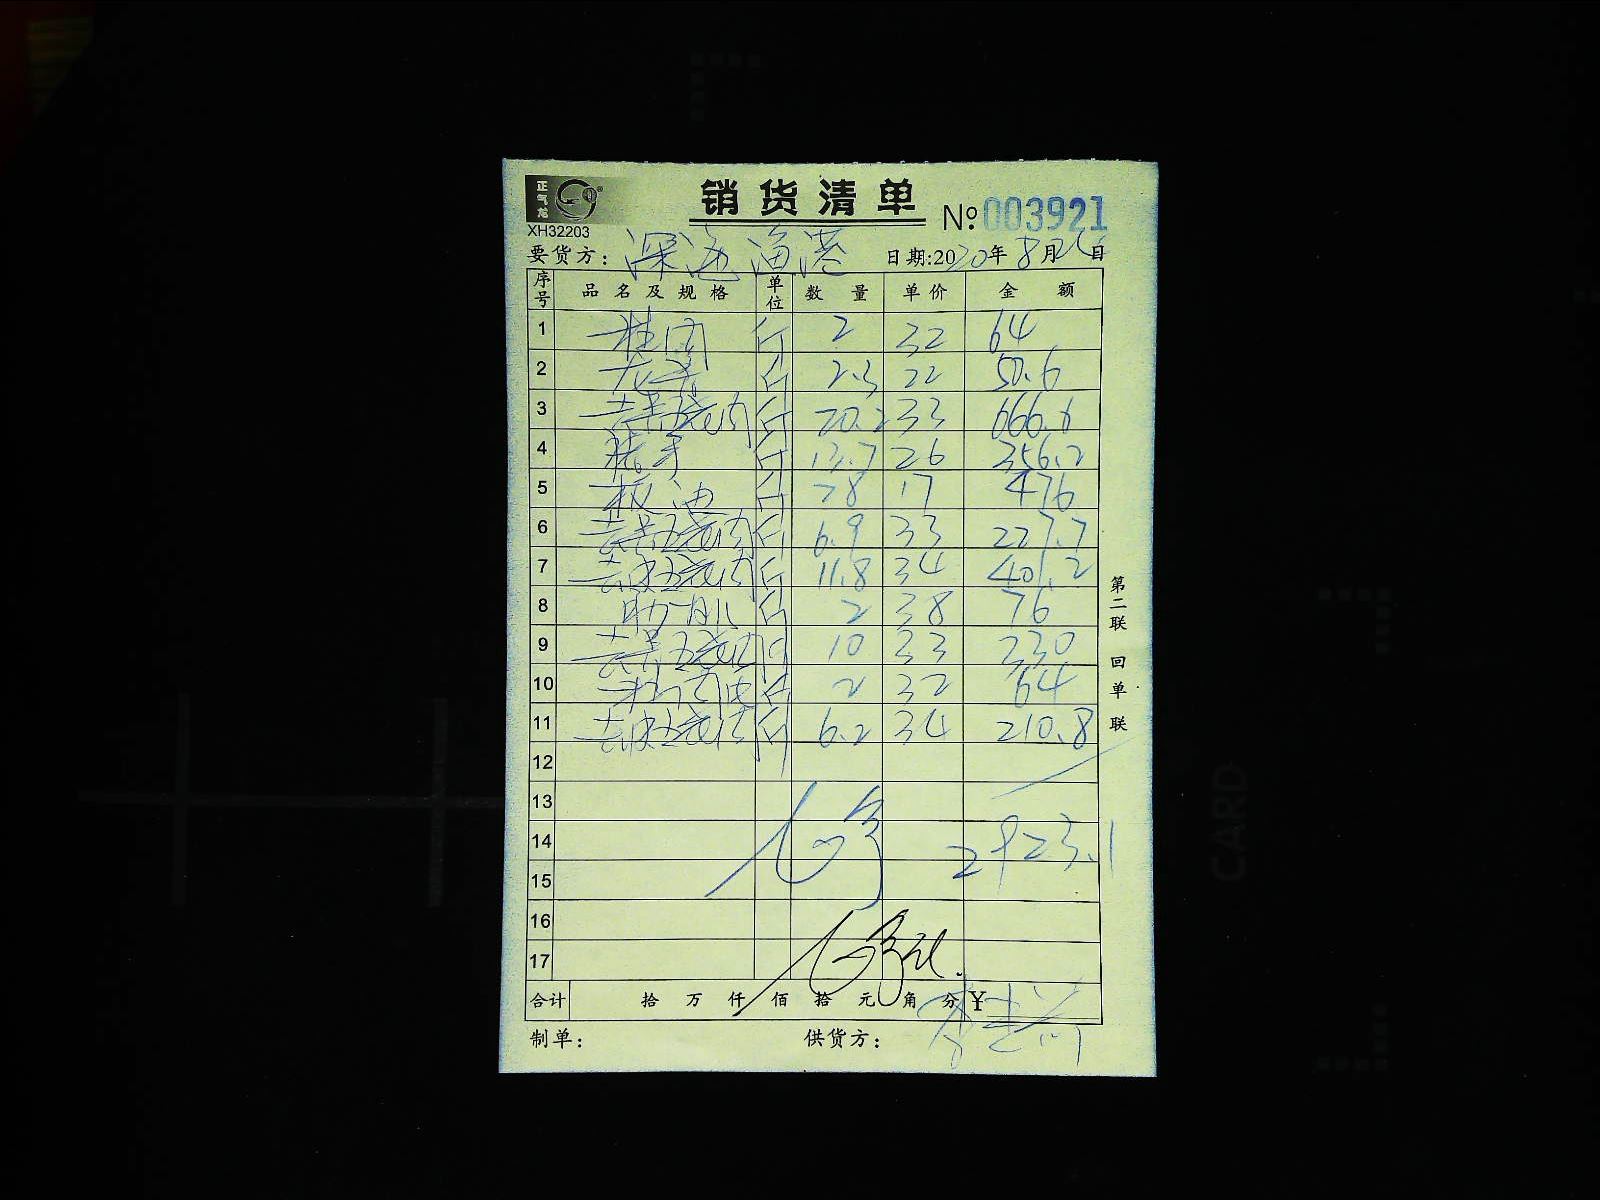 正气龙
XH32203
销货清单
No:003921
要货方：深海渔港 日期:2020年8月26日
序号 品名及规格 单位 数量 单价 金额
1 斤 2 32 64
2 斤 2.3 22 50.6
3 去皮五花肉 斤 20.2 33 666.6
4 猪手 斤 13.7 26 356.2
5 板油 斤 28 17 476
6 五花肉 斤 6.9 33 227.7
7 五花肉 斤 11.8 34 401.2
8 斤 2 38 76
9 五花肉 斤 10 33 330
10 斤 2 32 64
11 五花肉 斤 6.2 34 210.8
12
13
14 2923.1
15
16
17
合计 拾 万 仟 佰 拾 元 角 分 ¥
制单： 供货方：
第二联 回单联
CARD